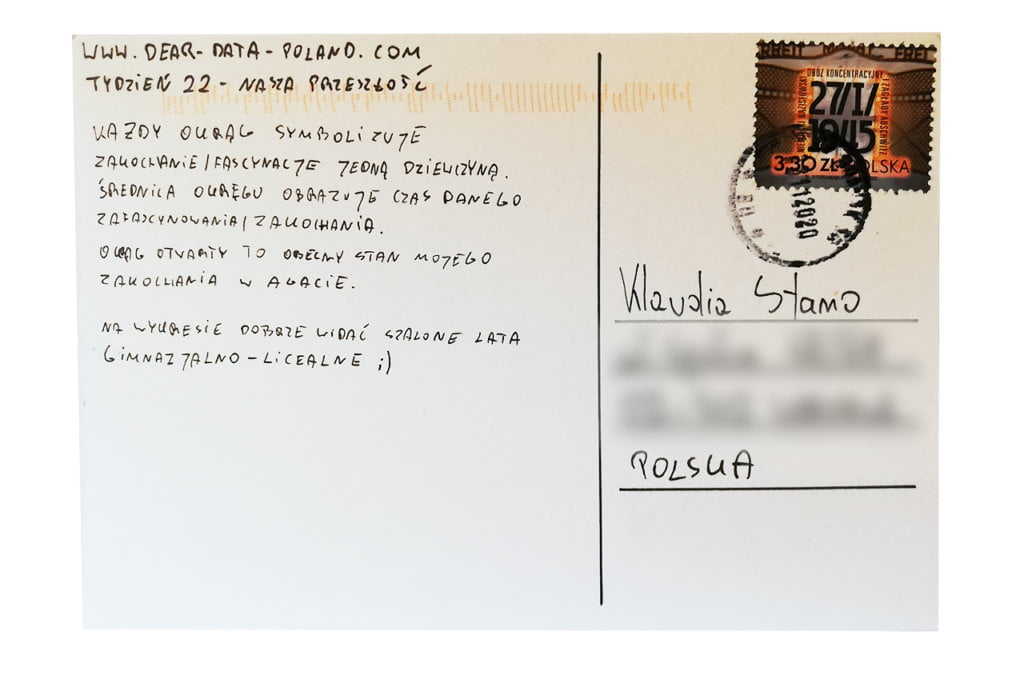 WWW. DEAR-DATA-POLAND. COM
TYDZIEŃ 22 - NASZA PRZESZŁOŚĆ
KAŻDY OKRĄG SYMBOLIZUJE
ZAKOCHANIE/FASCYNACJĘ JEDNĄ DZIEWCZYNĄ.
ŚREDNICA OKRĘGU OBRAZUJE CZAS DANEGO
ZAFASCYNOWANIA/ZAKOCHANIA.
OKRĄG OTWARTY TO OBECNY STAN MOJEGO
ZAKOCHANIA W AGACIE.
NA WYKRESIE DOBRZE WIDAĆ SZALONE LATA
GIMNAZJALNO-LICEALNE ;)
ARBEIT MACHT FREI
OBÓZ KONCENTRACYJNY
I ZAGŁADY AUSCHWITZ
27/I/
19/45
3,30 ZŁ POLSKA
2020
Klaudia Stamo
POLSKA